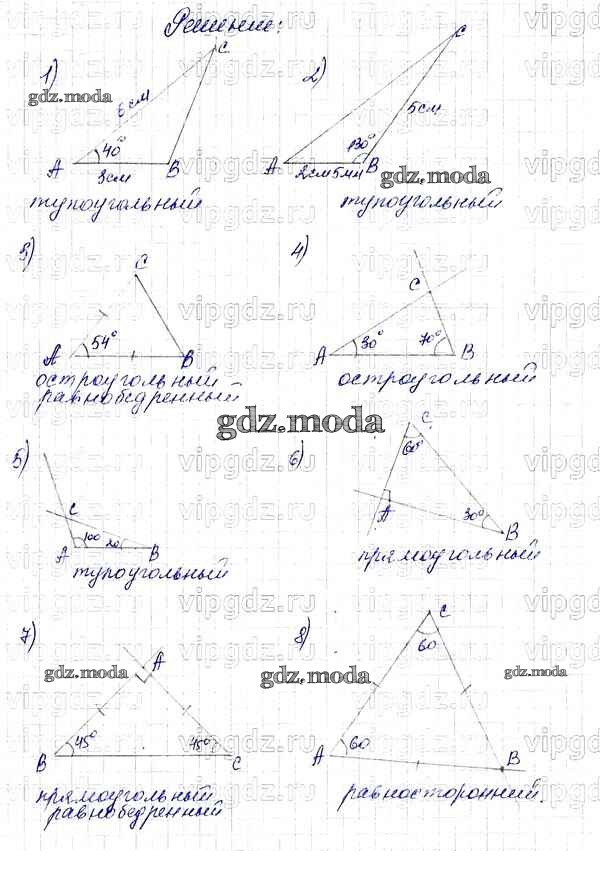 Решение:
1)
C
6 см
40°
A
3см
B
тупоугольный
2)
C
5см
130°
A
2см5мм
B
тупоугольный
3)
C
54°
A
B
остроугольный
равнобедренный
4)
C
30°
70°
A
B
остроугольный
5)
C
100
20
A
B
тупоугольный
6)
C
60°
A
30°
B
прямоугольный
7)
A
45°
45°
B
C
прямоугольный
равнобедренный
8)
C
60
60
A
B
равносторонний.
gdz.moda
gdz.moda
gdz.moda
gdz.moda
gdz.moda
gdz.moda
vipgdz.ru